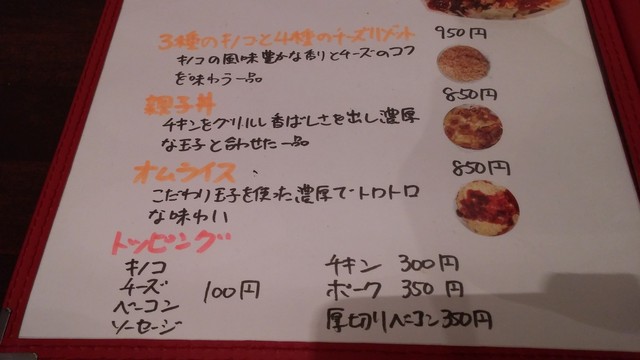 3種のキノコと4種のチーズリゾット 950円
キノコの風味豊かな香りとチーズのコク
を味わう一品
親子丼 850円
チキンをグリルし香ばしさを出し濃厚
な玉子と合わせた一品
オムライス 850円
こだわり玉子を使った濃厚でトロトロ
な味わい
トッピング
キノコ チキン 300円
チーズ 100円 ポーク 350円
ベーコン 厚切りベーコン 350円
ソーセージ